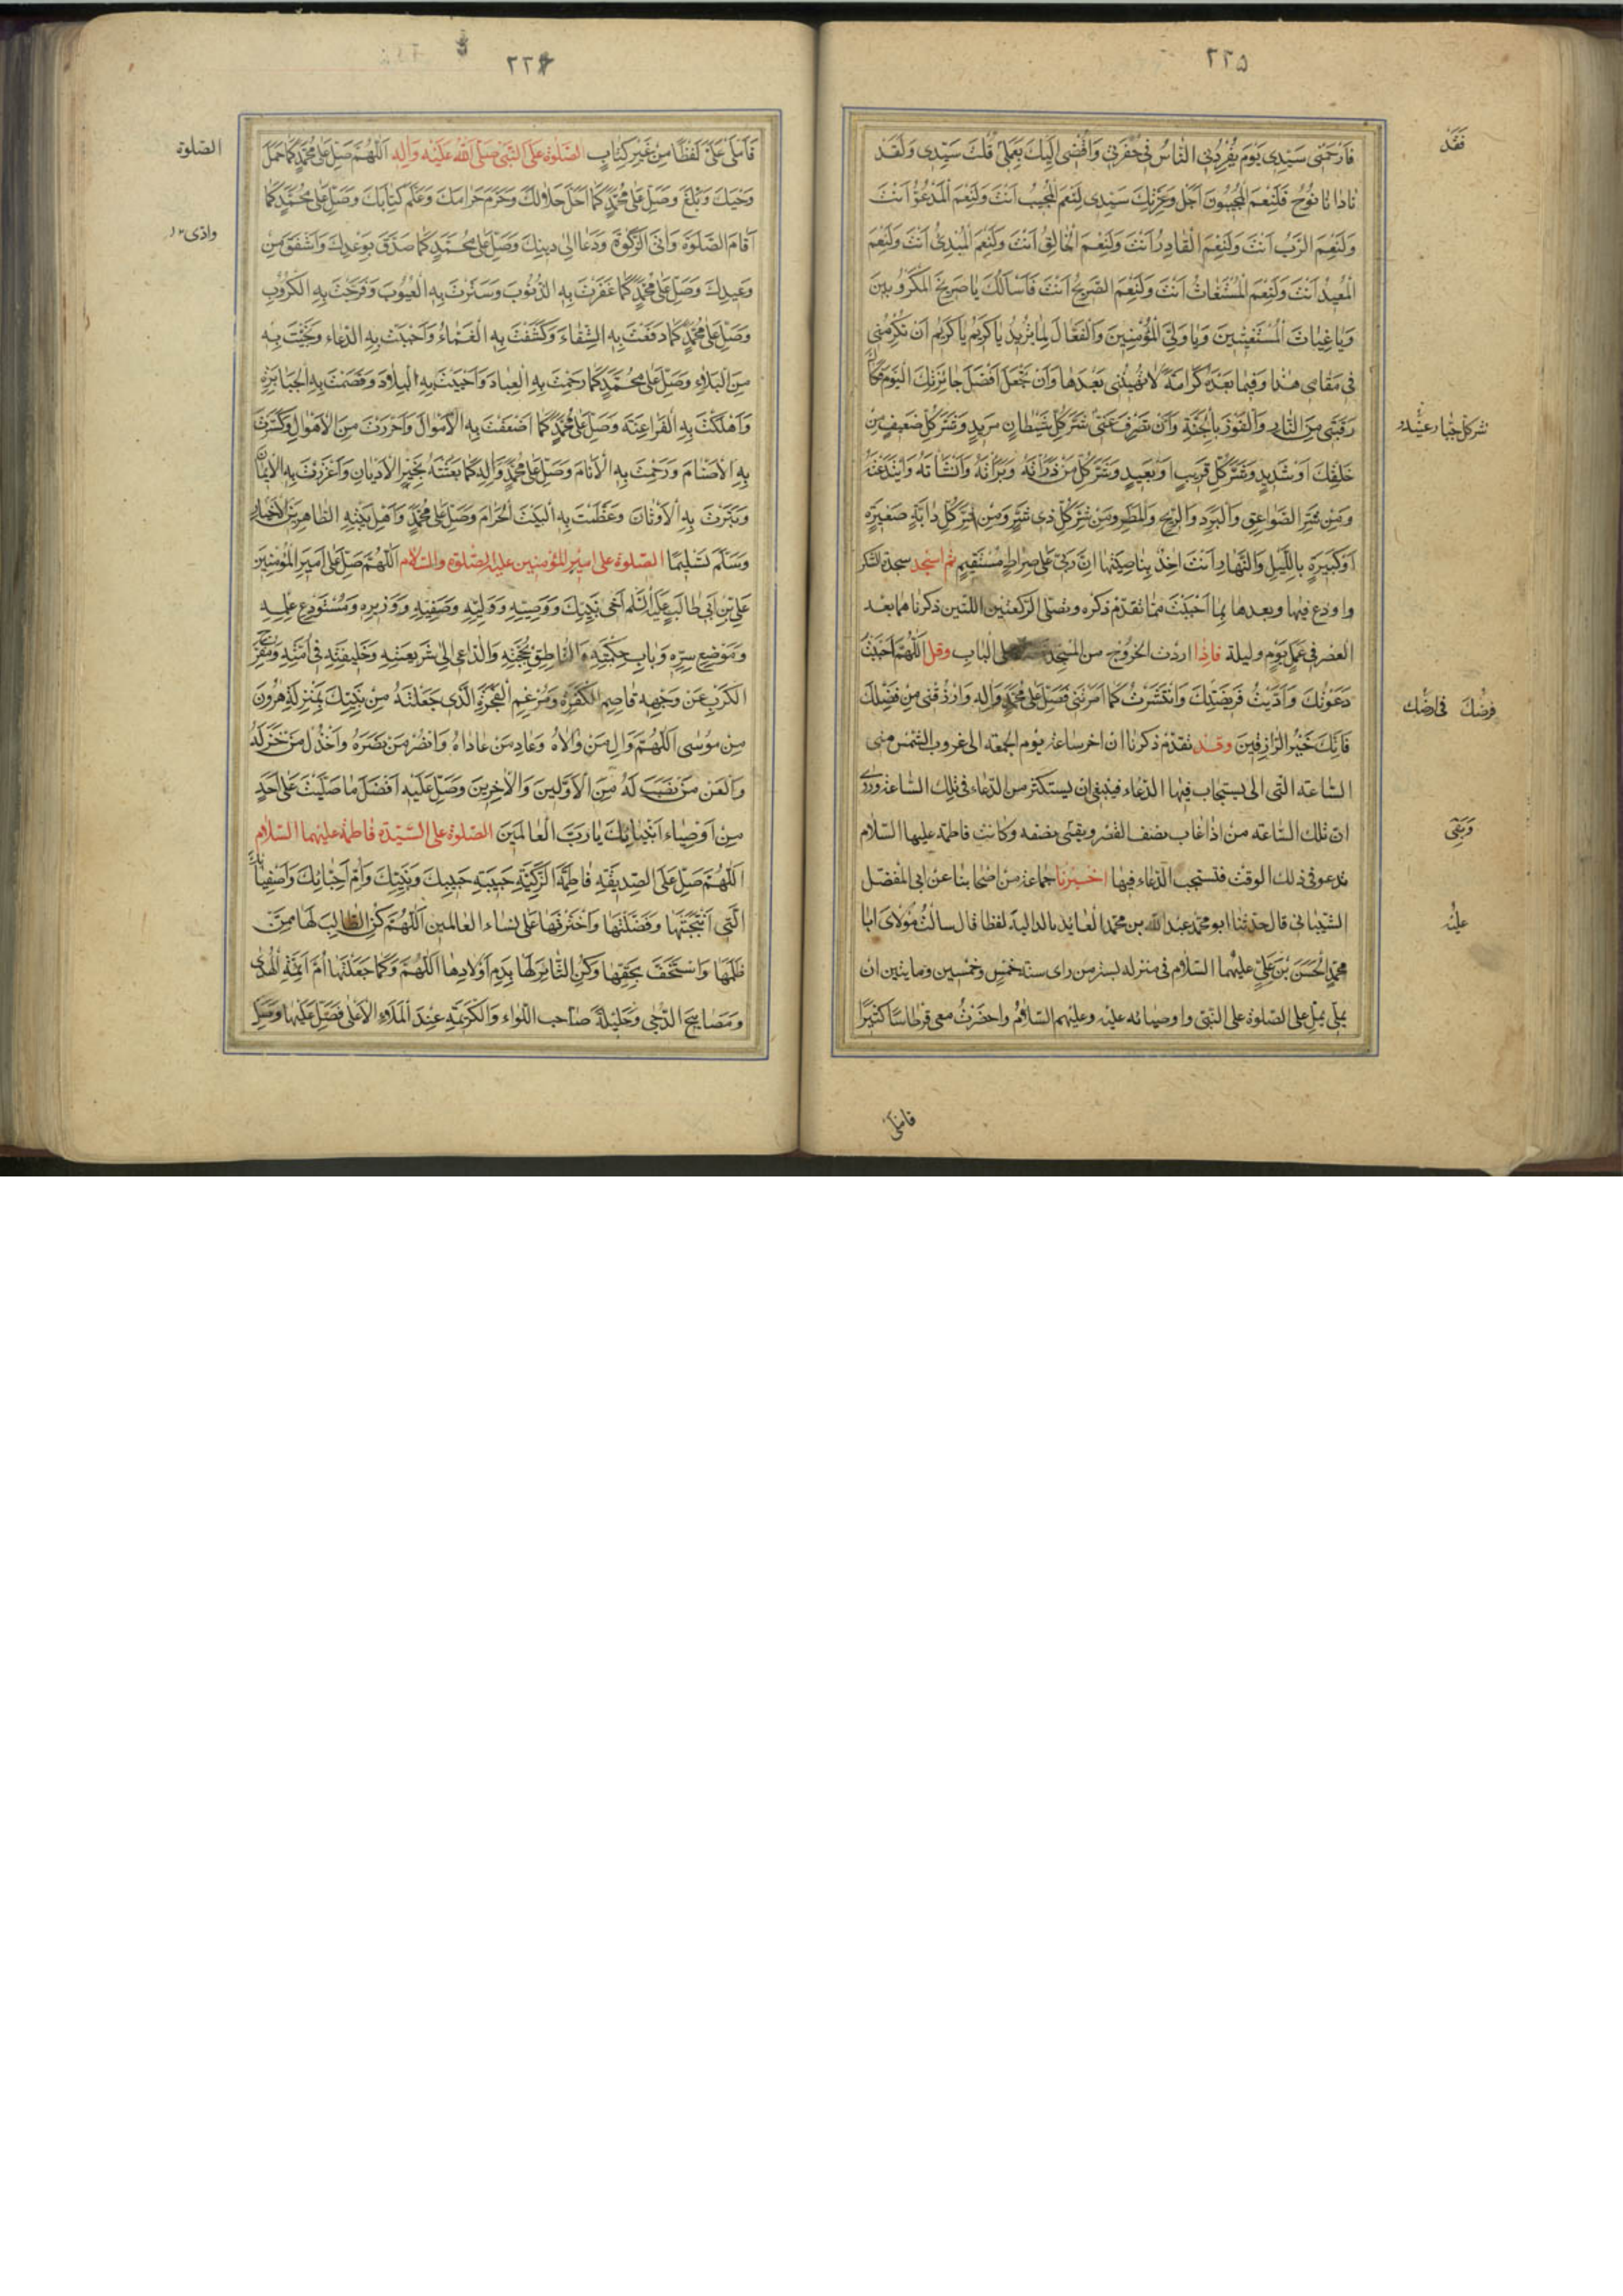 ٢٢٥
فَارْحَمْنِى سَيِّدِى يَوْمَ يُفْرِدُنِى النَّاسُ فِى حُفْرَتِى وَاُفْضِى اِلَيْكَ بِعَمَلِى قُلْتَ سَيِّدِى وَلَقَدْ
فَقَدْ
نَادَانَا نُوحٌ فَلَنِعْمَ الْمُجِيبُونَ اَجَلْ وَعِزَّتِكَ سَيِّدِى لَنِعْمَ الْمُجِيبُ اَنْتَ وَلَنِعْمَ الْمَدْعُوُّ اَنْتَ
وَلَنِعْمَ الرَّبُّ اَنْتَ وَلَنِعْمَ الْقَادِرُ اَنْتَ وَلَنِعْمَ الْخَالِقُ اَنْتَ وَلَنِعْمَ الْمُبْدِئُ اَنْتَ وَلَنِعْمَ
الْمُعِيدُ اَنْتَ وَلَنِعْمَ الْمُسْتَغَاثُ اَنْتَ وَلَنِعْمَ الصَّرِيخُ اَنْتَ فَاَسْاَلُكَ يَا صَرِيخَ الْمَكْرُوبِينَ
وَيَا غِيَاثَ الْمُسْتَغِيثِينَ وَيَا وَلِىَّ الْمُؤْمِنِينَ وَالْفَعَّالَ لِمَا يُرِيدُ يَا كَرِيمُ يَا كَرِيمُ اَنْ تُكْرِمَنِى
فِى مَقَامِى هٰذَا وَفِيمَا بَعْدَهُ كَرَامَةً لَا تُهِينُنِى بَعْدَهَا وَاَنْ تَجْعَلَ اَفْضَلَ جَائِزَتِكَ الْيَوْمَ فَكَاكَ
رَقَبَتِى مِنَ النَّارِ وَالْفَوْزَ بِالْجَنَّةِ وَاَنْ تَصْرِفَ عَنِّى شَرَّ كُلِّ شَيْطَانٍ مَرِيدٍ وَشَرَّ كُلِّ ضَعِيفٍ مِنْ
شر كل جبار عنيد
خَلْقِكَ اَوْ شَدِيدٍ وَشَرَّ كُلِّ قَرِيبٍ اَوْ بَعِيدٍ وَشَرَّ كُلِّ مَنْ ذَرَاْتَهُ وَبَرَاْتَهُ وَاَنْشَاْتَهُ وَابْتَدَعْتَهُ
وَمِنْ شَرِّ الصَّوَاعِقِ وَالْبَرَدِ وَالرِّيحِ وَالْمَطَرِ وَمِنْ شَرِّ كُلِّ ذِى شَرٍّ وَمِنْ شَرِّ كُلِّ دَابَّةٍ صَغِيرَةٍ
اَوْ كَبِيرَةٍ بِاللَّيْلِ وَالنَّهَارِ اَنْتَ اٰخِذٌ بِنَاصِيَتِهَا اِنَّ رَبِّى عَلَى صِرَاطٍ مُسْتَقِيمٍ ثم اسجد سجدة الشكر
وادع فيها وبعدها بما احببت مما تقدم ذكره وتصلى الركعتين اللتين ذكرناهما بعد
العصر فى عمل يوم وليلة فاذا اردت الخروج من المسجد على الباب وقل اَللّٰهُمَّ اَجَبْتُ
دَعْوَتَكَ وَاَدَّيْتُ فَرِيضَتَكَ وَانْتَشَرْتُ كَمَا اَمَرْتَنِى فَصَلِّ عَلَى مُحَمَّدٍ وَاٰلِهِ وَارْزُقْنِى مِنْ فَضْلِكَ
فرضك فى ارضك
فَاِنَّكَ خَيْرُ الرَّازِقِينَ وقد تقدم ذكرنا ان اخر ساعة يوم الجمعة الى غروب الشمس هى
الساعة التى يستجاب فيها الدعاء فينبغى ان يستكثر من الدعاء فى تلك الساعة وروى
ان تلك الساعة من اذا غاب نصف القرص وبقى نصفه وكانت فاطمة عليها السلام
وَبَقِىَ
تدعو فى ذلك الوقت فتستحب الدعاء فيها اخبرنا جماعة من اصحابنا عن ابى المفضل
الشيبانى قال حدثنا ابو محمد عبد الله بن محمد العابد بالدالية لفظا قال سالت مولاى ابا
عليه
محمد الحسن بن على عليهما السلام فى منزله بسر من راى سنة خمس وخمسين ومايتين ان
يملى على الصلوة على النبى واوصيائه عليه وعليهم السلام واحضرت معى قرطاسا كثيرا
فاملى
٢٢٦
فَاَمْلَى عَلَىَّ لَفْظًا مِنْ غَيْرِ كِتَابٍ الصلوة على النبى صلى الله عليه واله اَللّٰهُمَّ صَلِّ عَلَى مُحَمَّدٍ كَمَا حَمَلَ
الصلوة
وَحْيَكَ وَبَلَّغَ وَصَلِّ عَلَى مُحَمَّدٍ كَمَا اَحَلَّ حَلَالَكَ وَحَرَّمَ حَرَامَكَ وَعَلَّمَ كِتَابَكَ وَصَلِّ عَلَى مُحَمَّدٍ كَمَا
اَقَامَ الصَّلٰوةَ وَاٰتَى الزَّكٰوةَ وَدَعَا اِلَى دِينِكَ وَصَلِّ عَلَى مُحَمَّدٍ كَمَا صَدَّقَ بِوَعْدِكَ وَاَشْفَقَ مِنْ
وَعِيدِكَ وَصَلِّ عَلَى مُحَمَّدٍ كَمَا غَفَرْتَ بِهِ الذُّنُوبَ وَسَتَرْتَ بِهِ الْعُيُوبَ وَفَرَّجْتَ بِهِ الْكُرُوبَ
وَصَلِّ عَلَى مُحَمَّدٍ كَمَا دَفَعْتَ بِهِ الشَّقَاءَ وَكَشَفْتَ بِهِ الْغَمَّاءَ وَاَجَبْتَ بِهِ الدُّعَاءَ وَنَجَّيْتَ بِهِ
مِنَ الْبَلَاءِ وَصَلِّ عَلَى مُحَمَّدٍ كَمَا رَحِمْتَ بِهِ الْعِبَادَ وَاَحْيَيْتَ بِهِ الْبِلَادَ وَقَصَمْتَ بِهِ الْجَبَابِرَةَ
وَاَهْلَكْتَ بِهِ الْفَرَاعِنَةَ وَصَلِّ عَلَى مُحَمَّدٍ كَمَا اَضْعَفْتَ بِهِ الْاَمْوَالَ وَاَحْرَزْتَ مِنَ الْاَهْوَالِ وَكَسَرْتَ
بِهِ الْاَصْنَامَ وَرَحِمْتَ بِهِ الْاَنَامَ وَصَلِّ عَلَى مُحَمَّدٍ وَاٰلِهِ كَمَا بَعَثْتَهُ بِخَيْرِ الْاَدْيَانِ وَاَعْزَزْتَ بِهِ الْاِيمَانَ
وَتَبَّرْتَ بِهِ الْاَوْثَانَ وَعَظَّمْتَ بِهِ الْبَيْتَ الْحَرَامَ وَصَلِّ عَلَى مُحَمَّدٍ وَاَهْلِ بَيْتِهِ الطَّاهِرِينَ الْاَخْيَارِ
وَسَلِّمْ تَسْلِيمًا الصلوة على امير المؤمنين عليه الصلوة والسلام اَللّٰهُمَّ صَلِّ عَلَى اَمِيرِ الْمُؤْمِنِينَ
عَلِىِّ بْنِ اَبِى طَالِبٍ عليه السلام اَخِى نَبِيِّكَ وَوَصِيِّهِ وَوَلِيِّهِ وَصَفِيِّهِ وَوَزِيرِهِ وَمُسْتَوْدَعِ عِلْمِهِ
وَمَوْضِعِ سِرِّهِ وَبَابِ حِكْمَتِهِ وَالنَّاطِقِ بِحُجَّتِهِ وَالدَّاعِى اِلَى شَرِيعَتِهِ وَخَلِيفَتِهِ فِى اُمَّتِهِ وَمُفَرِّجِ
الْكَرْبِ عَنْ وَجْهِهِ قَاصِمِ الْكَفَرَةِ وَمُرْغِمِ الْفَجَرَةِ الَّذِى جَعَلْتَهُ مِنْ نَبِيِّكَ بِمَنْزِلَةِ هٰرُونَ
مِنْ مُوسَى اَللّٰهُمَّ وَالِ مَنْ وَالَاهُ وَعَادِ مَنْ عَادَاهُ وَانْصُرْ مَنْ نَصَرَهُ وَاخْذُلْ مَنْ خَذَلَهُ
وَالْعَنْ مَنْ نَصَبَ لَهُ مِنَ الْاَوَّلِينَ وَالْاٰخِرِينَ وَصَلِّ عَلَيْهِ اَفْضَلَ مَا صَلَّيْتَ عَلَى اَحَدٍ
مِنْ اَوْصِيَاءِ اَنْبِيَائِكَ يَا رَبَّ الْعَالَمِينَ الصلوة على السيدة فاطمة عليهما السلام
اَللّٰهُمَّ صَلِّ عَلَى الصِّدِّيقَةِ فَاطِمَةَ الزَّكِيَّةِ حَبِيبَةِ حَبِيبِكَ وَنَبِيِّكَ وَاُمِّ اَحِبَّائِكَ وَاَصْفِيَائِكَ
الَّتِى انْتَجَبْتَهَا وَفَضَّلْتَهَا وَاخْتَرْتَهَا عَلَى نِسَاءِ الْعَالَمِينَ اَللّٰهُمَّ كُنِ الطَّالِبَ لَهَا مِمَّنْ
ظَلَمَهَا وَاسْتَخَفَّ بِحَقِّهَا وَكُنِ الثَّائِرَ لَهَا بِدَمِ اَوْلَادِهَا اَللّٰهُمَّ وَكَمَا جَعَلْتَهَا اُمَّ اَئِمَّةِ الْهُدَى
وَمَصَابِيحِ الدُّجَى وَحَلِيلَةَ صَاحِبِ اللِّوَاءِ وَالْكَرِيمَةَ عِنْدَ الْمَلَاءِ الْاَعْلَى فَصَلِّ عَلَيْهَا وَعَلَى